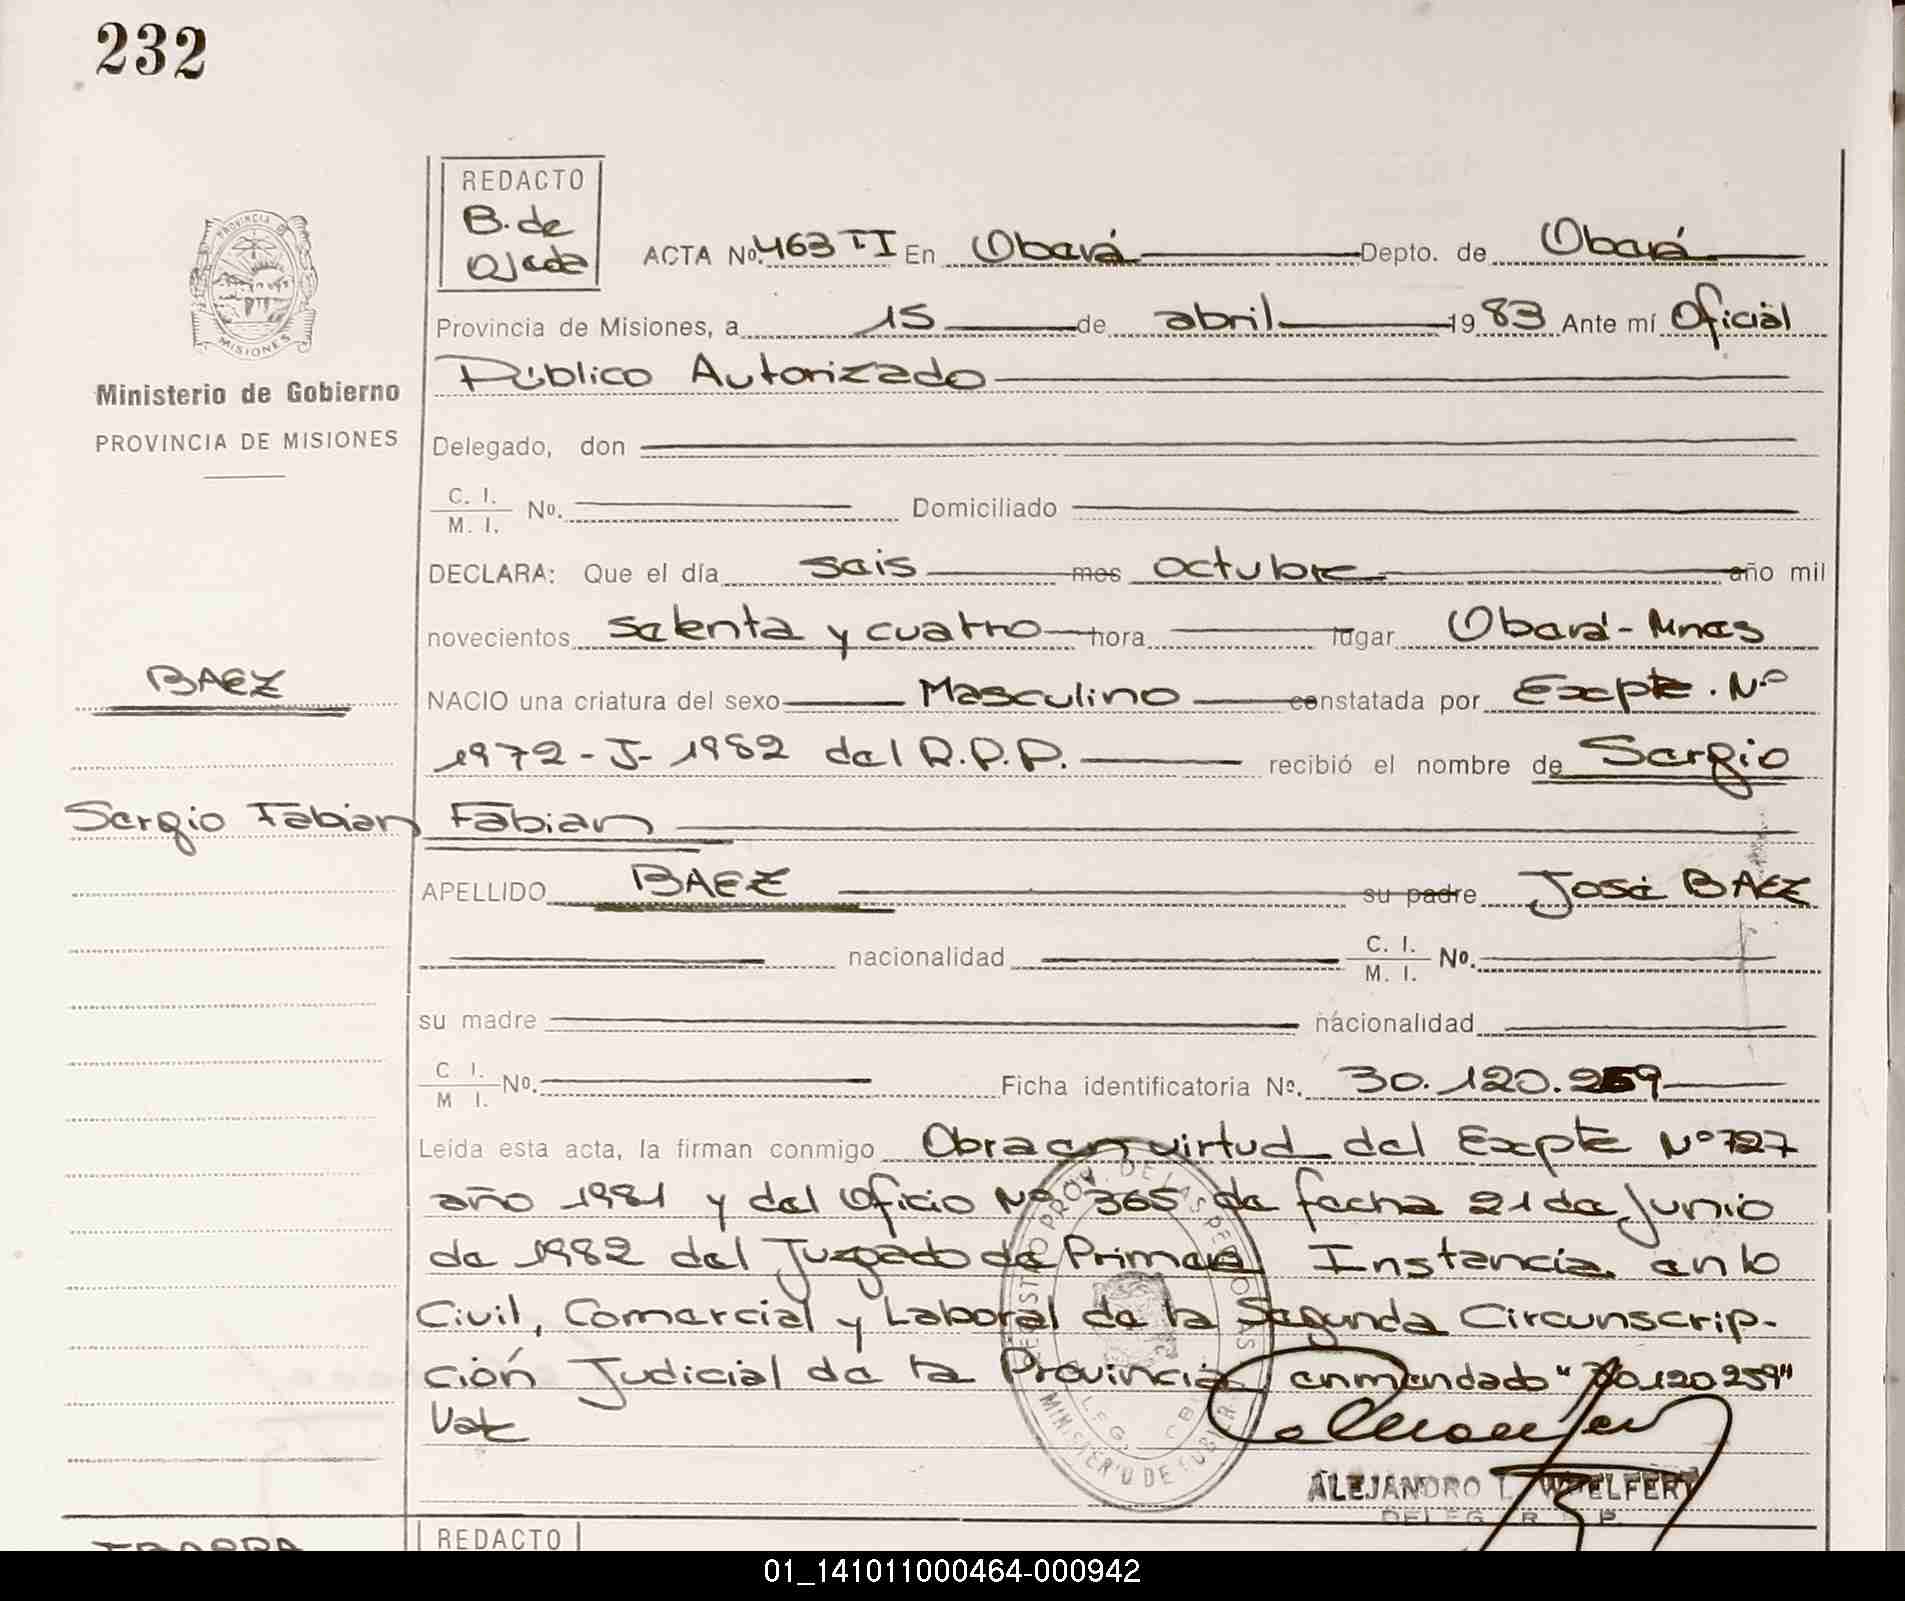 232
REDACTO
B. de
Ojeda
PROVINCIA DE
MISIONES
Ministerio de Gobierno
PROVINCIA DE MISIONES
ACTA No. 463 II En Oberá Depto. de Oberá
Provincia de Misiones, a 15 de abril 1983 Ante mí Oficial
Público Autorizado
Delegado, don
C. I.
M. I. No. Domiciliado
DECLARA: Que el día seis mes octubre año mil
novecientos setenta y cuatro hora lugar Oberá-Mnes
BAEZ
NACIO una criatura del sexo Masculino constatada por Expte. Nº
1972-J-1982 del R.P.P. recibió el nombre de Sergio
Sergio Fabian
Fabian
APELLIDO BAEZ su padre José BAEZ
nacionalidad C. I.
M. I. No.
su madre nacionalidad
C I.
M I. No. Ficha identificatoria No. 30.120.259
Leída esta acta, la firman conmigo Obra en virtud del Expte Nº 727
año 1981 y del Oficio Nº 365 de fecha 21 de Junio
de 1982 del Juzgado de Primera Instancia en lo
Civil, Comercial y Laboral de la Segunda Circunscrip-
ción Judicial de la Provincia enmendado "30120259"
Vale
REGISTRO PROV. DE LAS PERSONAS
MINISTERIO DE GOBIER
ALEJANDRO L. WOELFERT
DELEG R P.
IBARRA
REDACTO
01_141011000464-000942